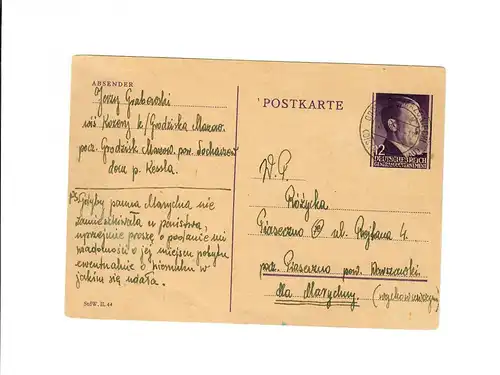 ABSENDER
Jerzy Grabowski
wieś Kozery k/Grodziska Mazow.
pocz. Grodzisk Mazow. pow. Sochaczew
dom p. Kessla.
Gdyby panna Marychna nie
zamieszkiwała u państwa,
uprzejmie proszę o podanie mi
wiadomości o jej miejscu pobytu
ewentualnie o kierunku w
jakim się udała.
StdW. II. 44
POSTKARTE
12
DEUTSCHES REICH
GENERALGOUVERNEMENT
W.P.
Różycka
Piaseczno ul. 4
pocz. Piaseczno pow. Warszawski
dla Marychny